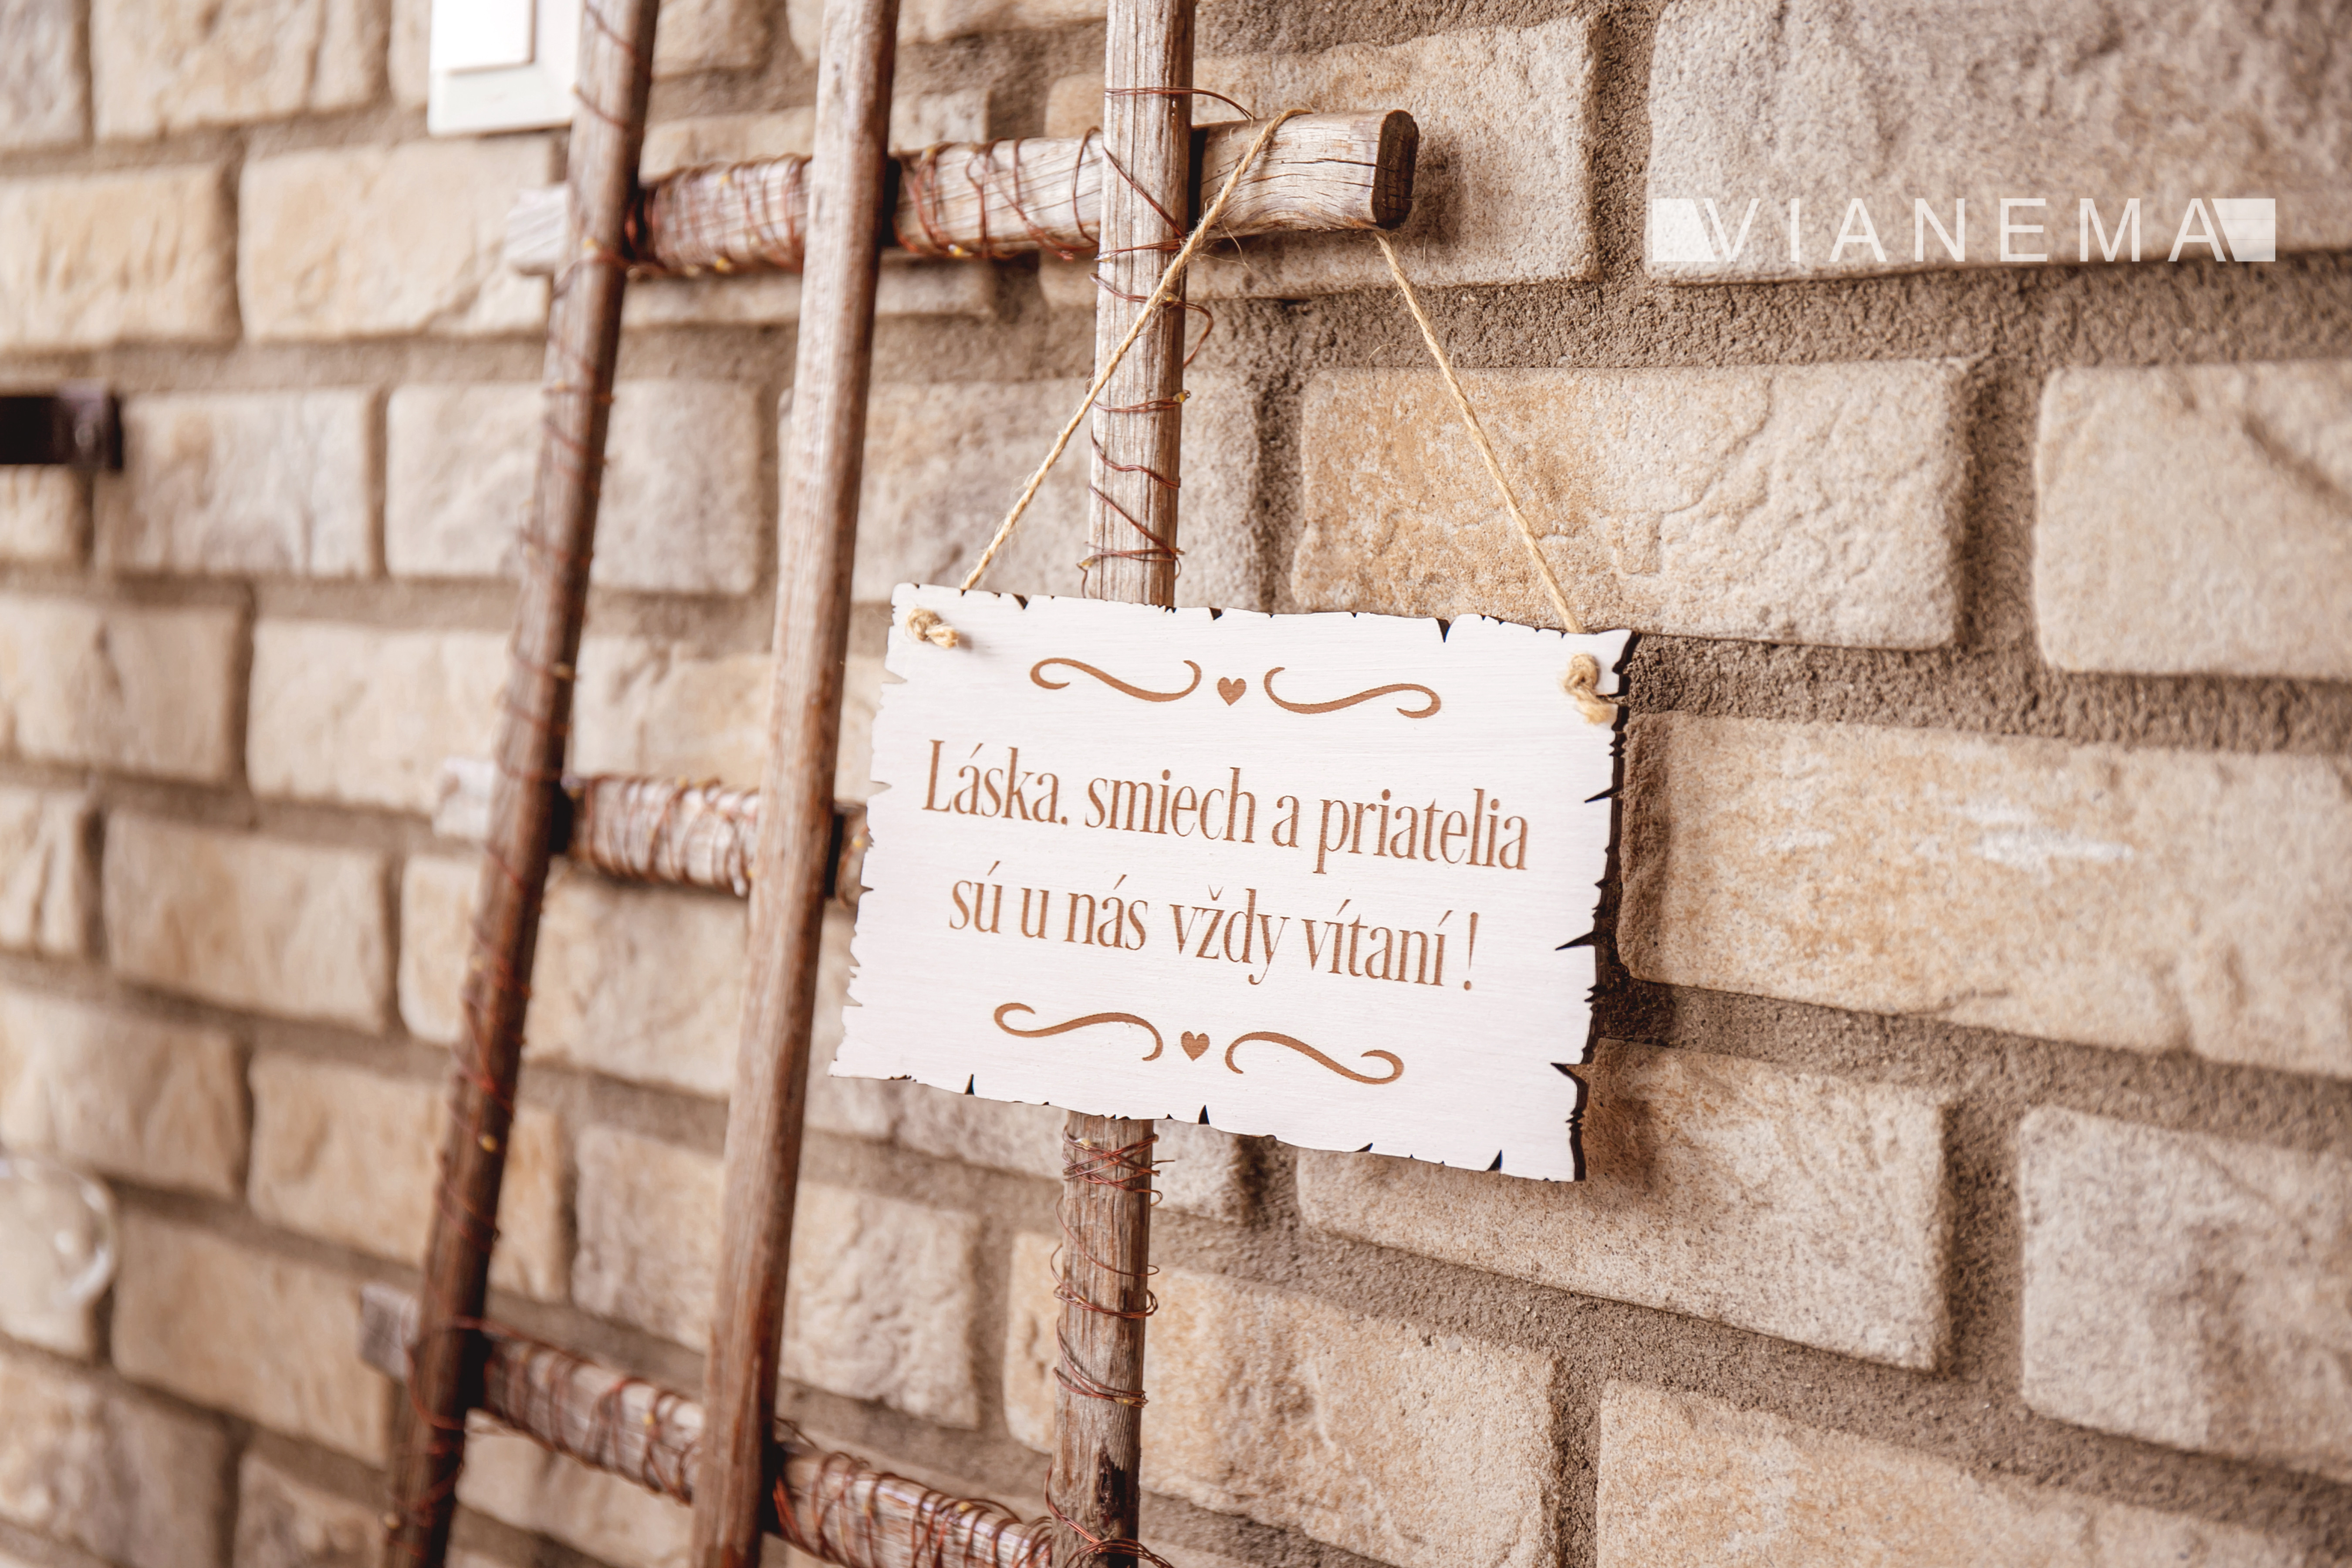 VIANEMA
Láska. smiech a priatelia
sú u nás vždy vítaní !